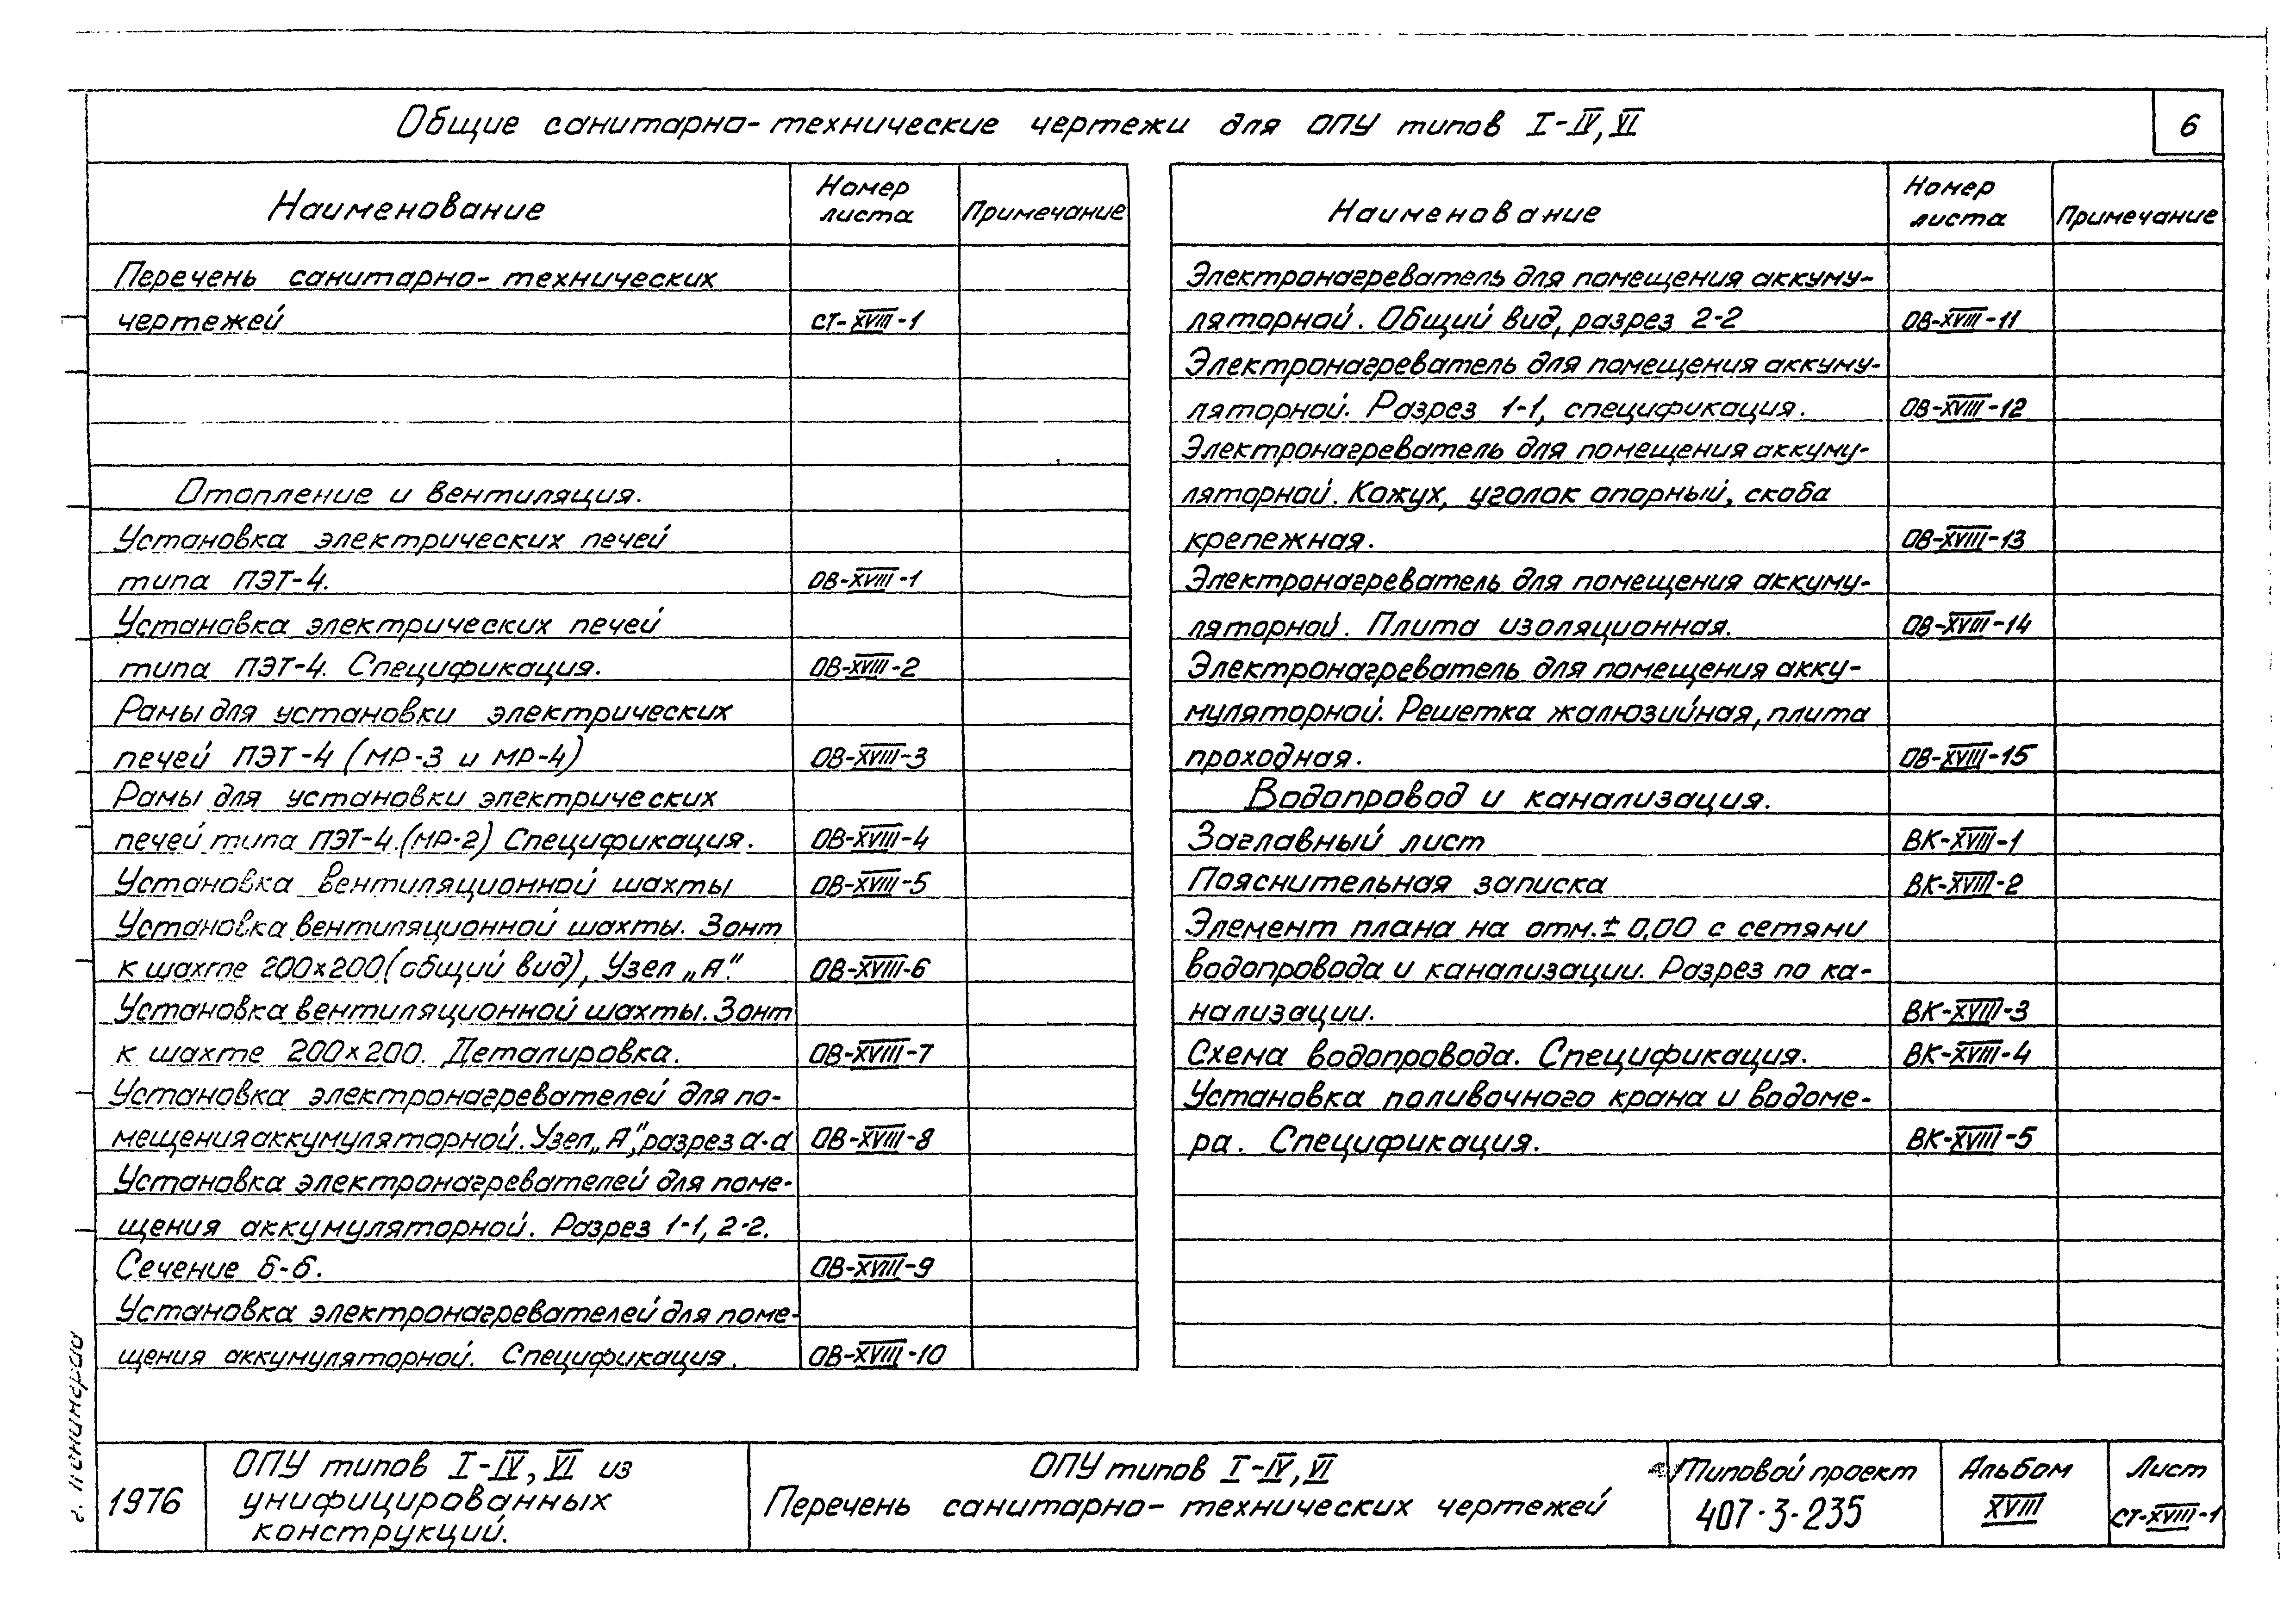 Общие санитарно-технические чертежи для ОПУ типов I-IV, VI
6
Наименование
Номер листа
Примечание
Перечень санитарно-технических
чертежей СТ-XVIII-1
Отопление и вентиляция.
Установка электрических печей
типа ПЭТ-4. ОВ-XVIII-1
Установка электрических печей
типа ПЭТ-4. Спецификация. ОВ-XVIII-2
Рамы для установки электрических
печей ПЭТ-4 (МР-3 и МР-4) ОВ-XVIII-3
Рамы для установки электрических
печей типа ПЭТ-4.(МР-2) Спецификация. ОВ-XVIII-4
Установка вентиляционной шахты ОВ-XVIII-5
Установка вентиляционной шахты. Зонт
к шахте 200×200 (общий вид), Узел „А". ОВ-XVIII-6
Установка вентиляционной шахты. Зонт
к шахте 200×200. Деталировка. ОВ-XVIII-7
Установка электронагревателей для по-
мещения аккумуляторной. Узел „А", разрез а-а ОВ-XVIII-8
Установка электронагревателей для поме-
щения аккумуляторной. Разрез 1-1, 2-2.
Сечение б-б. ОВ-XVIII-9
Установка электронагревателей для поме-
щения аккумуляторной. Спецификация. ОВ-XVIII-10
Наименование
Номер листа
Примечание
Электронагреватель для помещения аккуму-
ляторной. Общий вид, разрез 2-2 ОВ-XVIII-11
Электронагреватель для помещения аккуму-
ляторной. Разрез 1-1, спецификация. ОВ-XVIII-12
Электронагреватель для помещения аккуму-
ляторной. Кожух, уголок опорный, скоба
крепежная. ОВ-XVIII-13
Электронагреватель для помещения аккуму-
ляторной. Плита изоляционная. ОВ-XVIII-14
Электронагреватель для помещения акку-
муляторной. Решетка жалюзийная, плита
проходная. ОВ-XVIII-15
Водопровод и канализация.
Заглавный лист ВК-XVIII-1
Пояснительная записка ВК-XVIII-2
Элемент плана на отм. ± 0,00 с сетями
водопровода и канализации. Разрез по ка-
нализации. ВК-XVIII-3
Схема водопровода. Спецификация. ВК-XVIII-4
Установка поливочного крана и водоме-
ра. Спецификация. ВК-XVIII-5
1976
ОПУ типов I-IV, VI из
унифицированных
конструкций.
ОПУ типов I-IV, VI
Перечень санитарно-технических чертежей
Типовой проект
407-3-235
Альбом
XVIII
Лист
СТ-XVIII-1